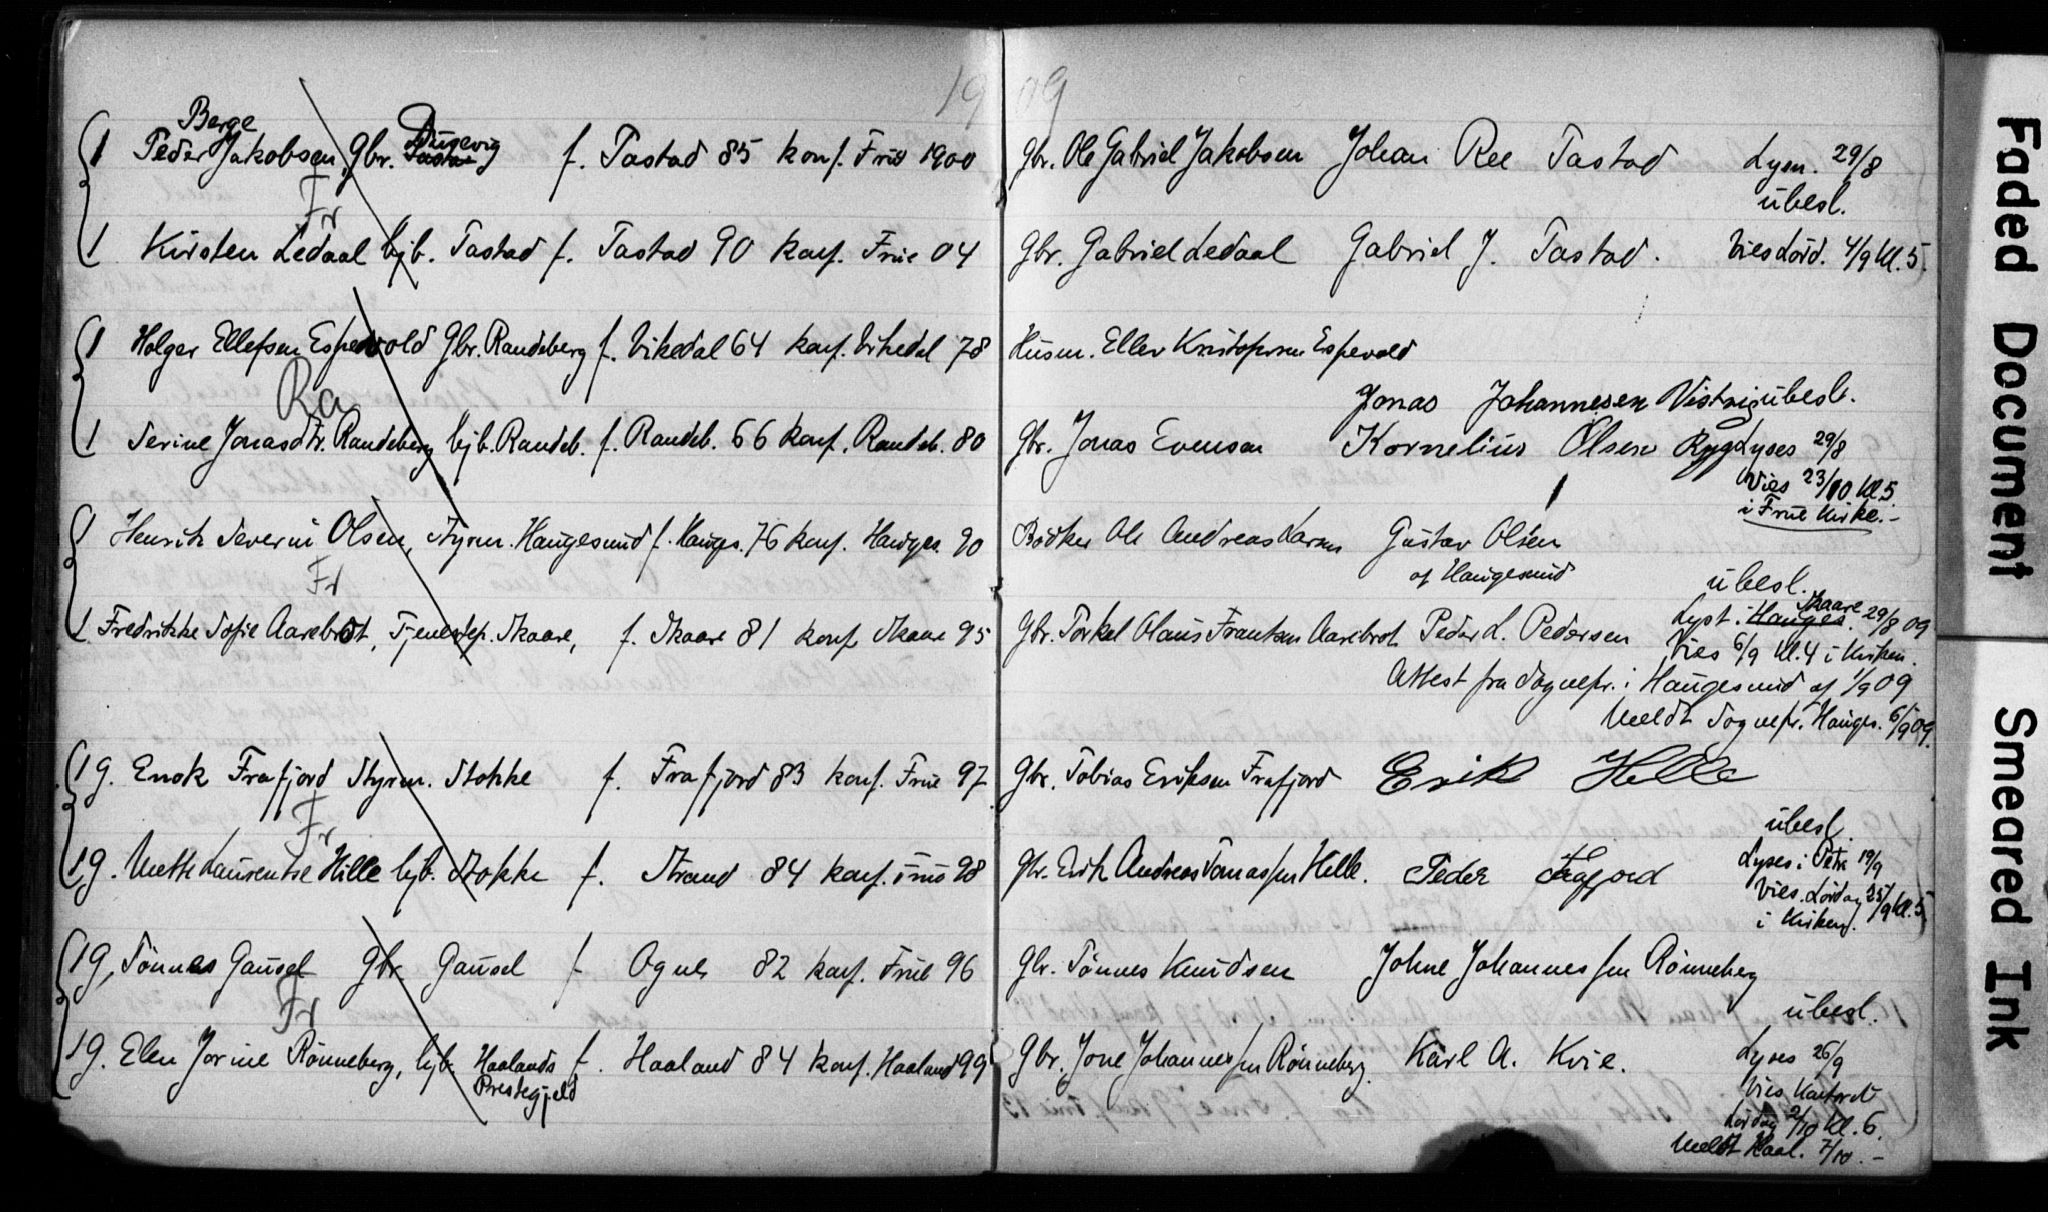 19 09
Berge Dusevig
1 Peder Jakobsen, Gbr. Tastad f. Tastad 85 konf. Frue 1900 Gbr. Ole Gabriel Jakobsen Johan Ree Tastad Lysn. 29/8
Fr ubesl.
1 Kirsten Ledaal hjb. Tastad f. Tastad 90 konf. Frue 04 Gbr. Gabriel Ledaal Gabriel J. Tastad. Vies Lørd. 4/9 kl. 5.
1 Holger Ellefsen Espevold Gbr. Randeberg f. Vikedal 64 konf. Vikedal 78 Husm. Ellev Kristofersen Espevold
Ra Jonas Johannesen Vistnis ubesl.
1 Serine Jonasdtr. Randeberg hjb. Randeb. f. Randeb. 66 konf. Randeb. 80 Gbr. Jonas Evensen Kornelius Olsen Ryg Lyses 29/8
Vies 23/10 kl. 5
i Frue Kirke.-
1 Henrik Severin Olsen, Styrm. Haugesund f. Hauges. 76 konf. Hauges. 90 Bødker Ole Andreas Larsen Gustav Olsen
Fr af Haugesund ubesl.
Skaare
1 Fredrikke Sofie Aarebrot, Tjenestep. Skaare, f. Skaare 81 konf. Skaare 95 Gbr. Torkel Olaus Frantsen Aarebrot Peder L. Pedersen Lyst i Hauges. 29/8 09
Vies 6/9 kl. 4 i Kirken.
Attest fra Sognepr. i Haugesund af 1/9 09
Meldt Sognepr. Hauges. 6/9 09.
19. Enok Frafjord Styrm. Stokke f. Frafjord 83 konf. Frue 97 Gbr. Tobias Eriksen Frafjord Erik Helle
Fr ubesl.
19. Mette Laurentse Hille hjb. Stokke f. Strand 84 konf. Frue 98 Gbr. Erik Andreas Tomassen Helle. Peder Lyses i Petri 19/9
Vies. Lørdag 25/9 kl. 5
i Kirken.
19, Tønnes Gausel Gbr Gausel f Ogne 82 konf. Frue 96 Gbr. Tønnes Knudsen Johne Johannessen Rønneberg
Fr ubesl.
19. Elen Jorine Rønneberg, hjb. Haalands f. Haaland 84 konf. Haaland 99 Gbr. Jone Johannessen Rønneberg. Karl A. Kvie. Lyses 26/9
Prestegjeld Vies Kontoret
Lørdag 2/10 kl. 6.
Meldt Haal. 7/10.-
Faded Document
Smeared Ink